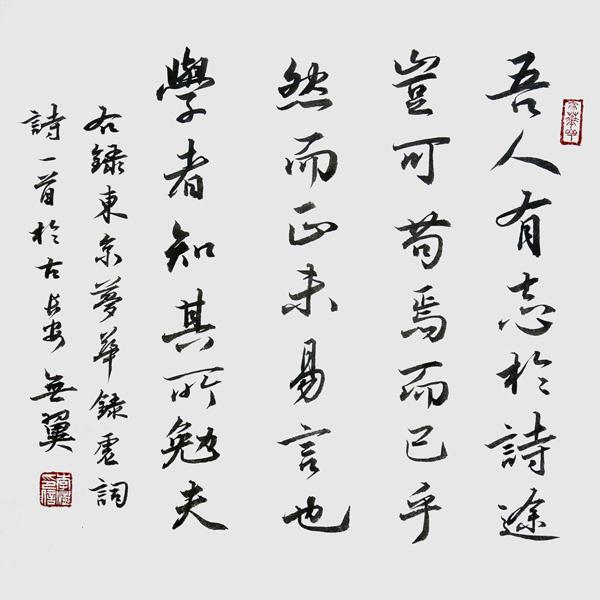 吾人有志於詩途
豈可苟焉而已乎
然而正未易言也
學者知其所勉夫
右録東京夢華録詞
詩一首於古長安 無翼